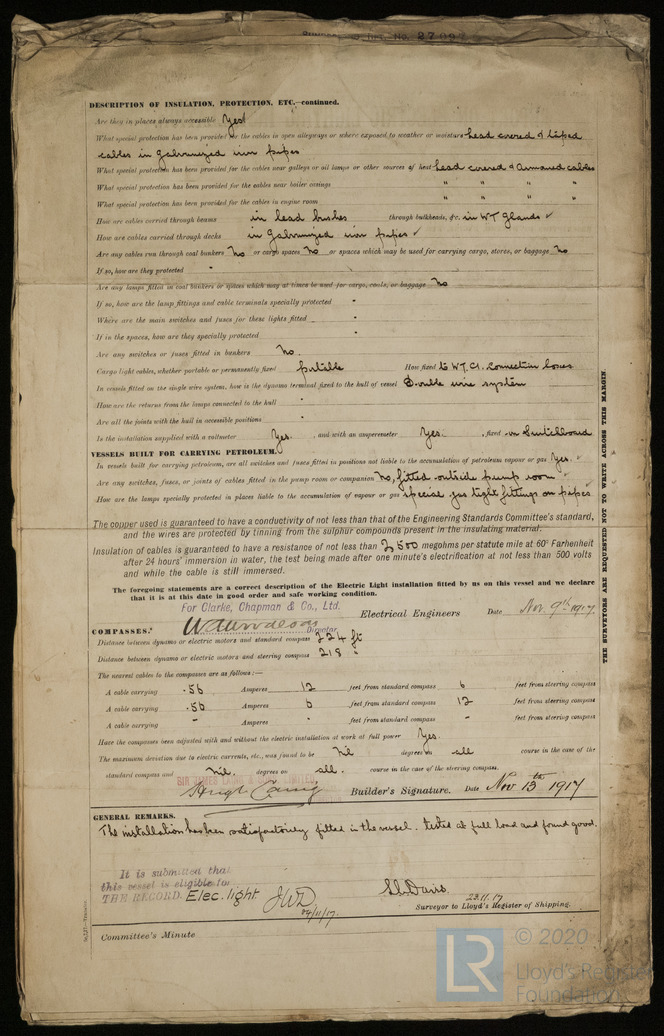 DESCRIPTION OF INSULATION, PROTECTION, ETC.—continued.
Are they in places always accessible Yes
What special protection has been provided for the cables in open alleyways or where exposed to weather or moisture Lead covered & taped
cables in Galvanized iron pipes
What special protection has been provided for the cables near galleys or oil lamps or other sources of heat Lead covered & Armoured cables
What special protection has been provided for the cables near boiler casings " " " "
What special protection has been provided for the cables in engine room " " " "
How are cables carried through beams in lead bushes through bulkheads, &c. in WT Glands ✓
How are cables carried through decks in Galvanized iron pipes ✓
Are any cables run through coal bunkers No or cargo spaces No or spaces which may be used for carrying cargo, stores, or baggage No
If so, how are they protected "
Are any lamps fitted in coal bunkers or spaces which may at times be used for cargo, coals, or baggage No
If so, how are the lamp fittings and cable terminals specially protected "
Where are the main switches and fuses for these lights fitted "
If in the spaces, how are they specially protected "
Are any switches or fuses fitted in bunkers No.
Cargo light cables, whether portable or permanently fixed portable How fixed to W.T. C.I. connection boxes
In vessels fitted on the single wire system, how is the dynamo terminal fixed to the hull of vessel Double wire system
How are the returns from the lamps connected to the hull "
Are all the joints with the hull in accessible positions "
Is the installation supplied with a voltmeter Yes. , and with an amperemeter Yes. , fixed on Switchboard
VESSELS BUILT FOR CARRYING PETROLEUM.
In vessels built for carrying petroleum, are all switches and fuses fitted in positions not liable to the accumulation of petroleum vapour or gas Yes. ✓
Are any switches, fuses, or joints of cables fitted in the pump room or companion No, fitted outside pump room ✓
How are the lamps specially protected in places liable to the accumulation of vapour or gas special gas tight fittings on pipes ✓
The copper used is guaranteed to have a conductivity of not less than that of the Engineering Standards Committee's standard,
and the wires are protected by tinning from the sulphur compounds present in the insulating material.
Insulation of cables is guaranteed to have a resistance of not less than 2500 megohms per statute mile at 60° Farhenheit
after 24 hours' immersion in water, the test being made after one minute's electrification at not less than 500 volts
and while the cable is still immersed.
The foregoing statements are a correct description of the Electric Light installation fitted by us on this vessel and we declare
that it is at this date in good order and safe working condition.
For Clarke, Chapman & Co., Ltd.
Electrical Engineers Date Nov. 9th 1917.
Director
COMPASSES.
Distance between dynamo or electric motors and standard compass 224 ft
Distance between dynamo or electric motors and steering compass 218 "
The nearest cables to the compasses are as follows:—
A cable carrying .56 Amperes 12 feet from standard compass 6 feet from steering compass
A cable carrying .56 Amperes 6 feet from standard compass 12 feet from steering compass
A cable carrying - Amperes " feet from standard compass - feet from steering compass
Have the compasses been adjusted with and without the electric installation at work at full power Yes.
The maximum deviation due to electric currents, etc., was found to be Nil degrees on all course in the case of the
standard compass and Nil. degrees on all. course in the case of the steering compass.
SIR JAMES LAING
Hugh Laing Builder's Signature. Date Nov 13th 1917
GENERAL REMARKS.
The installation has been satisfactorily fitted in the vessel. Tested at full load and found good.
It is submitted that
this vessel is eligible for
THE RECORD. Elec. light. JWD
S.C. Davis.
23.11.17
Surveyor to Lloyd's Register of Shipping.
Committee's Minute
THE SURVEYORS ARE REQUESTED NOT TO WRITE ACROSS THIS MARGIN
LR © 2020
Lloyd's Register
Foundation